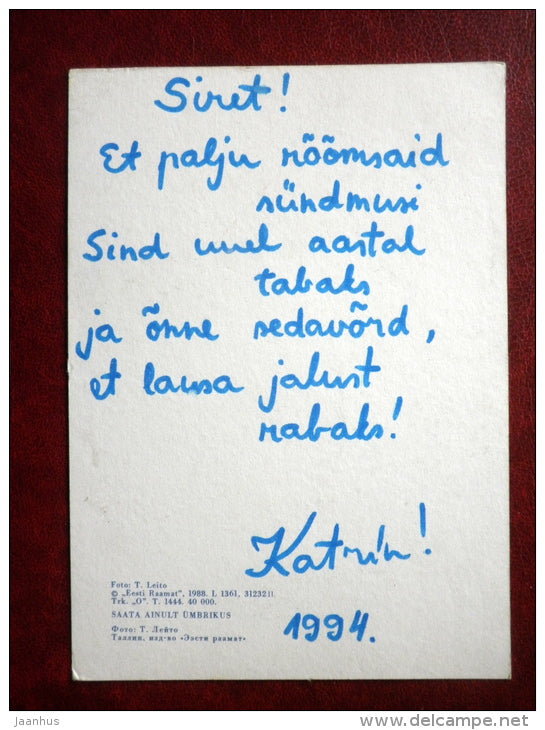 Siret!
Et palju rõõmsaid
sündmusi
Sind uuel aastal
tabaks
ja õnne sedavõrd,
et lausa jalust
rabaks!
Katrin!
1994.
Foto: T. Leito
© „Eesti Raamat", 1988. L 1361, 31232II.
Trk. „O". T. 1444. 40 000.
SAATA AINULT ÜMBRIKUS
Фото: Т. Лейто
Таллин, изд-во «Ээсти раамат»
jaanhus
www.delcampe.net